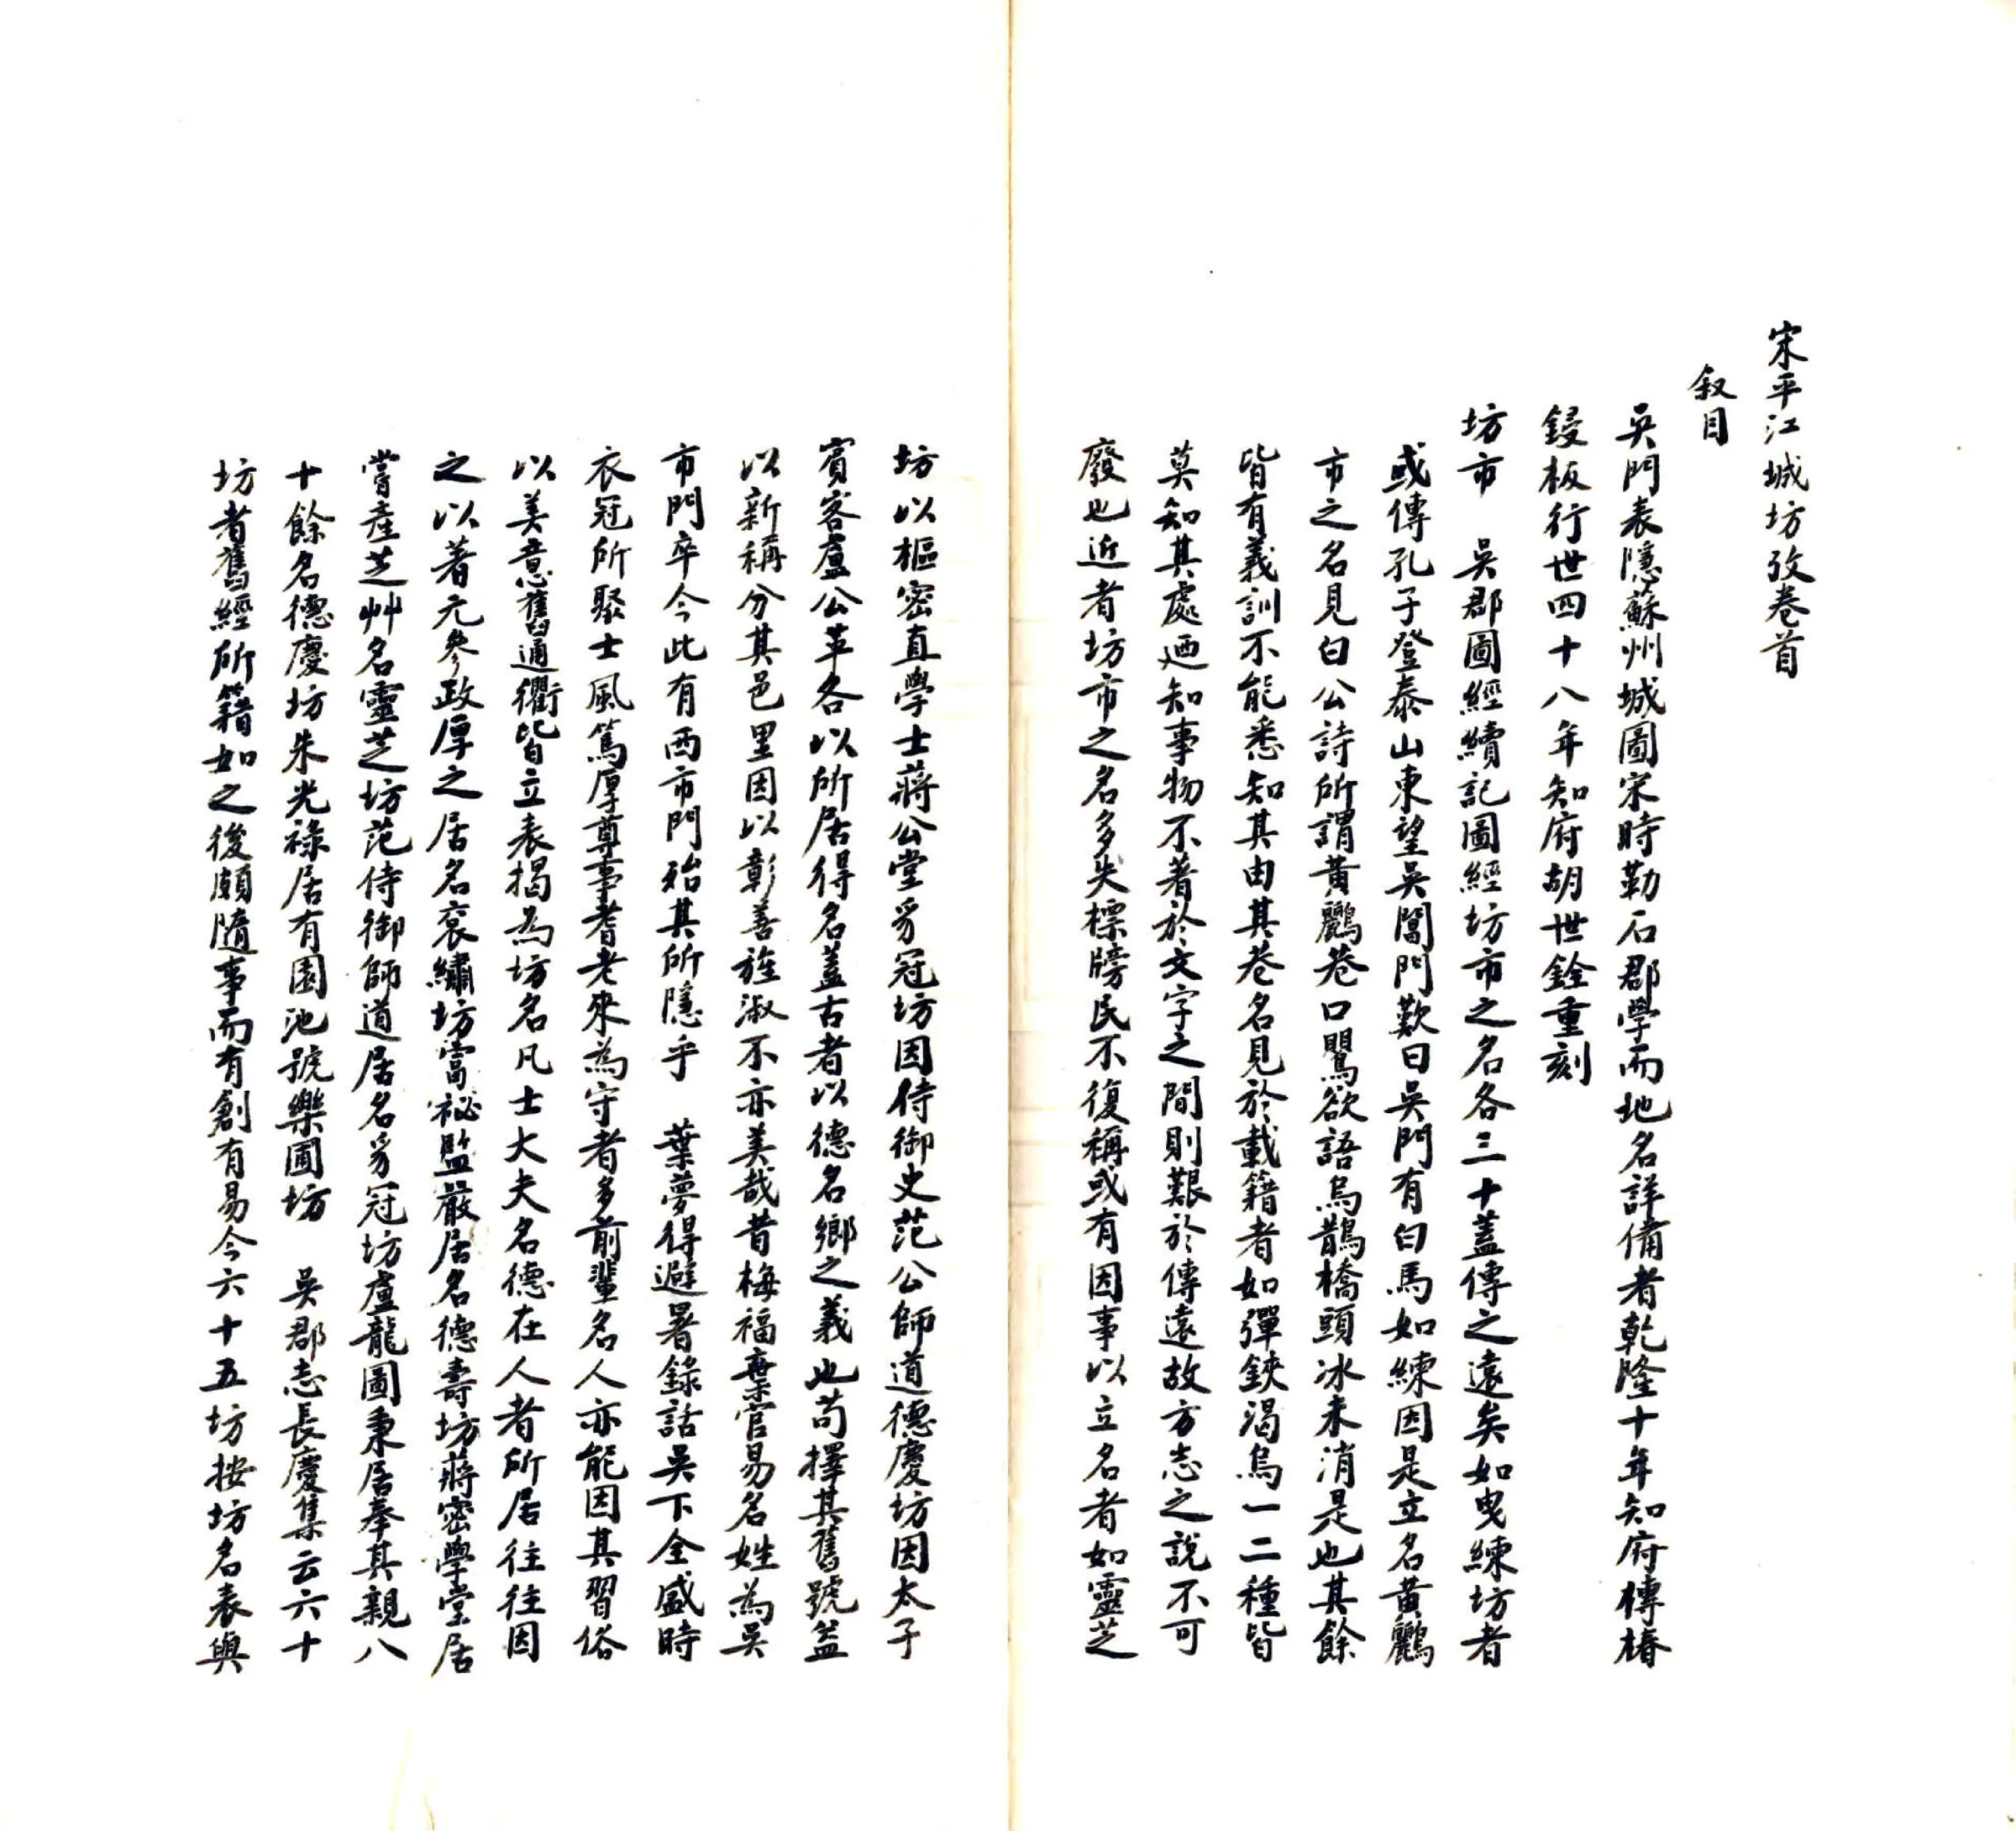 宋平江城坊攷卷首
叙目
吳門表隱蘇州城圖宋時勒石郡學而地名詳備者乾隆十年知府傅椿
鋟板行世四十八年知府胡世銓重刻
坊市　吳郡圖經續記圖經坊市之名各三十蓋傳之遠矣如曳練坊者
或傳孔子登泰山東望吳閶門歎曰吳門有白馬如練因是立名黃鸝
市之名見白公詩所謂黃鸝巷口鸎欲語烏鵲橋頭冰未消是也其餘
皆有義訓不能悉知其由其巷名見於載籍者如彈鋏渴烏一二種皆
莫知其處廼知事物不著於文字之間則艱於傳遠故方志之說不可
廢也近者坊市之名多失標牓民不復稱或有因事以立名者如靈芝
坊以樞密直學士蔣公堂豸冠坊因侍御史范公師道德慶坊因太子
賓客盧公革各以所居得名蓋古者以德名鄉之義也苟擇其舊號益
以新稱分其邑里因以彰善旌淑不亦美哉昔梅福棄官易名姓為吳
市門卒今此有西市門殆其所隱乎　葉夢得避暑錄話吳下全盛時
衣冠所聚士風篤厚尊事耆老來為守者多前輩名人亦能因其習俗
以美意舊通衢皆立表揭為坊名凡士大夫名德在人者所居往往因
之以著元參政厚之居名袞繡坊富祕監嚴居名德壽坊蔣密學堂居
嘗產芝艸名靈芝坊范侍御師道居名豸冠坊盧龍圖秉居奉其親八
十餘名德慶坊朱光祿居有園池號樂圃坊　吳郡志長慶集云六十
坊者舊經所籍如之後頗隨事而有創有易今六十五坊按坊名表與